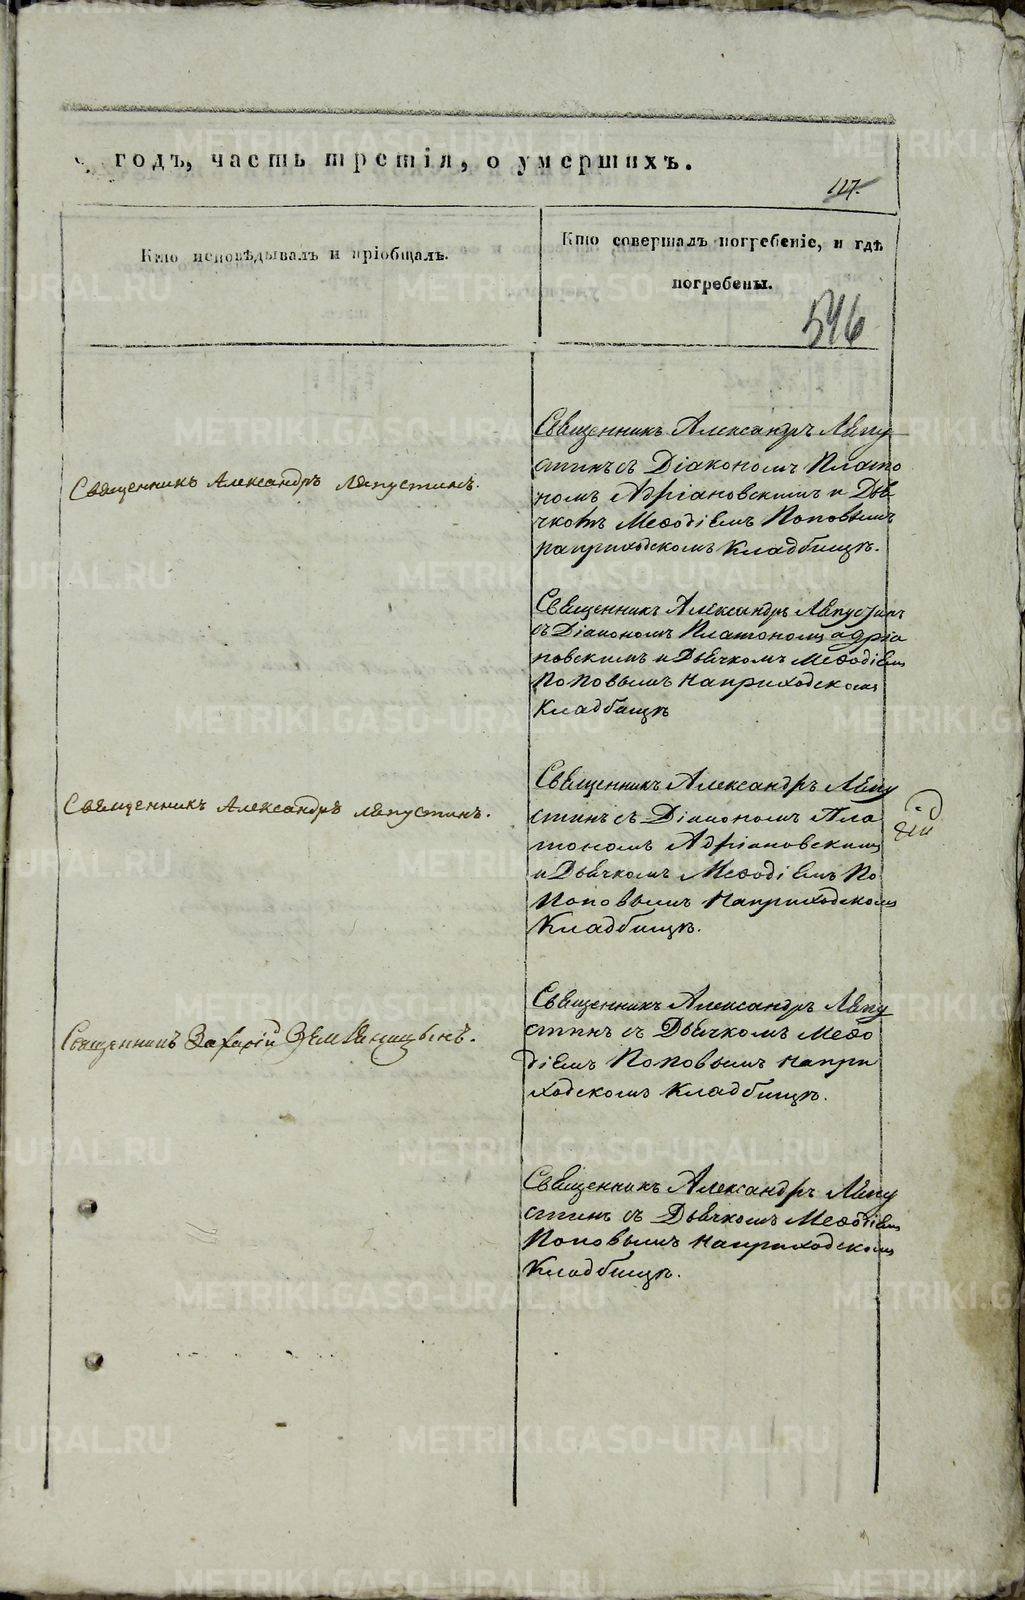 годъ, часть третія, о умершихъ.
117.
Кто исповѣдывалъ и пріобщалъ.
Кто совершалъ погребеніе, и гдѣ
погребены.
546
Священникъ Александръ Лепу
стинъ съ Діакономъ Плато
номъ Адріановскимъ и Дья
чкомъ Меѳодіемъ Поповымъ
наприходскомъ Кладбищѣ.
Священникъ Александръ Лепустинъ.
Священникъ Александръ Лепустинъ
съ Діакономъ Платономъ Адріа
новскимъ и Дьячкомъ Меѳодіемъ
Поповымъ наприходскомъ
Кладбищѣ
Священникъ Александръ Лепустинъ.
Священникъ Александръ Лепу
стинъ съ Діакономъ Пла
тономъ Адріановскимъ
и Дьячкомъ Меѳодіемъ По
Поповымъ наприходскомъ
Кладбищѣ.
Священникъ Захарій Земляницынъ.
Священникъ Александръ Лепу
стинъ съ Дьячкомъ Меѳо
діемъ Поповымъ напри
ходскомъ Кладбищѣ.
Священникъ Александръ Лепу
стинъ съ Дьячкомъ Меѳодіемъ
Поповымъ наприходскомъ
Кладбищѣ.
METRIKI.GASO-URAL.RU